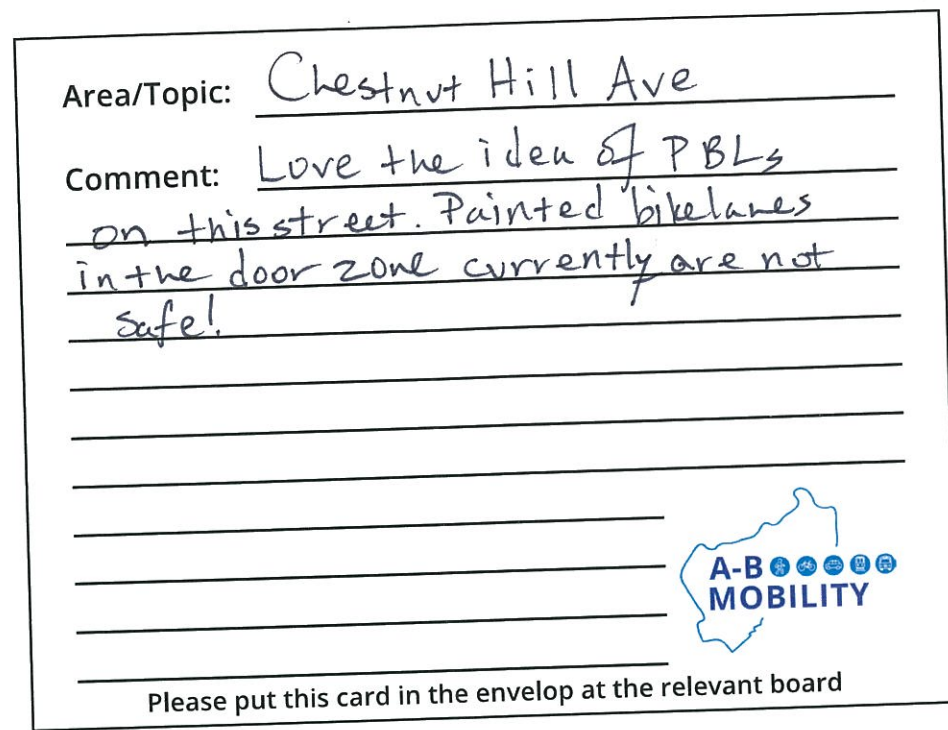 Area/Topic: Chestnut Hill Ave
Comment: Love the idea of PBLs
on this street. Painted bikelanes
in the door zone currently are not
safe!
A-B
MOBILITY
Please put this card in the envelop at the relevant board